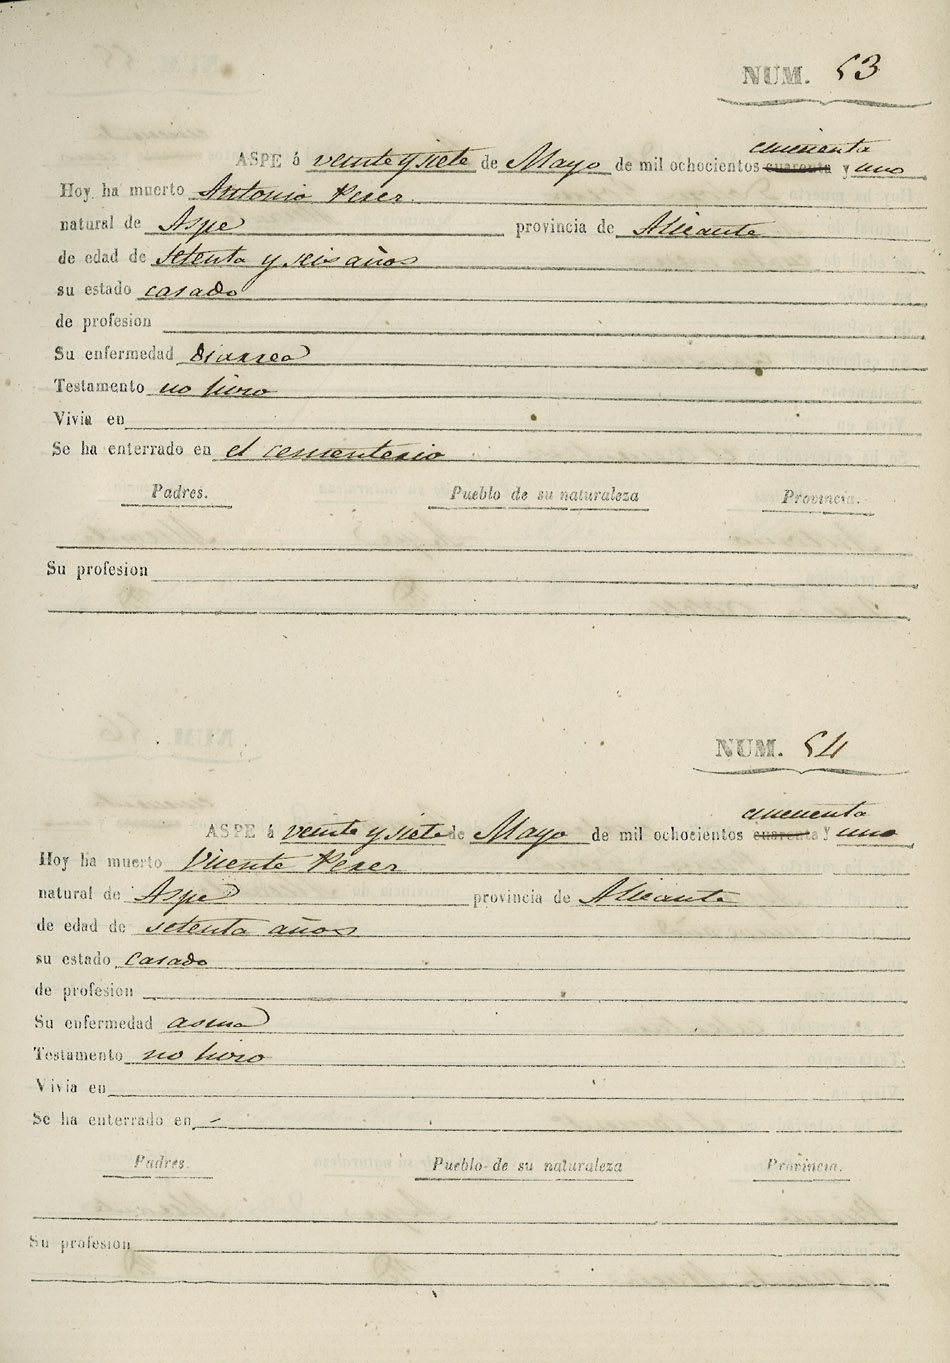 NUM. 53
cincuenta
ASPE á veinte y siete de Mayo de mil ochocientos cuarenta y uno
Hoy ha muerto Antonio Perez
natural de Aspe provincia de Alicante
de edad de setenta y seis años
su estado casado
de profesion
Su enfermedad diarrea
Testamento no hizo
Vivia en
Se ha enterrado en el cementerio
Padres. Pueblo de su naturaleza Provincia.
Su profesion
NUM. 54
cincuenta
ASPE á veinte y siete de Mayo de mil ochocientos cuarenta y uno
Hoy ha muerto Vicente Perez
natural de Aspe provincia de Alicante
de edad de setenta años
su estado casado
de profesion
Su enfermedad asma
Testamento no hizo
Vivia en
Se ha enterrado en
Padres. Pueblo de su naturaleza Provincia.
Su profesion